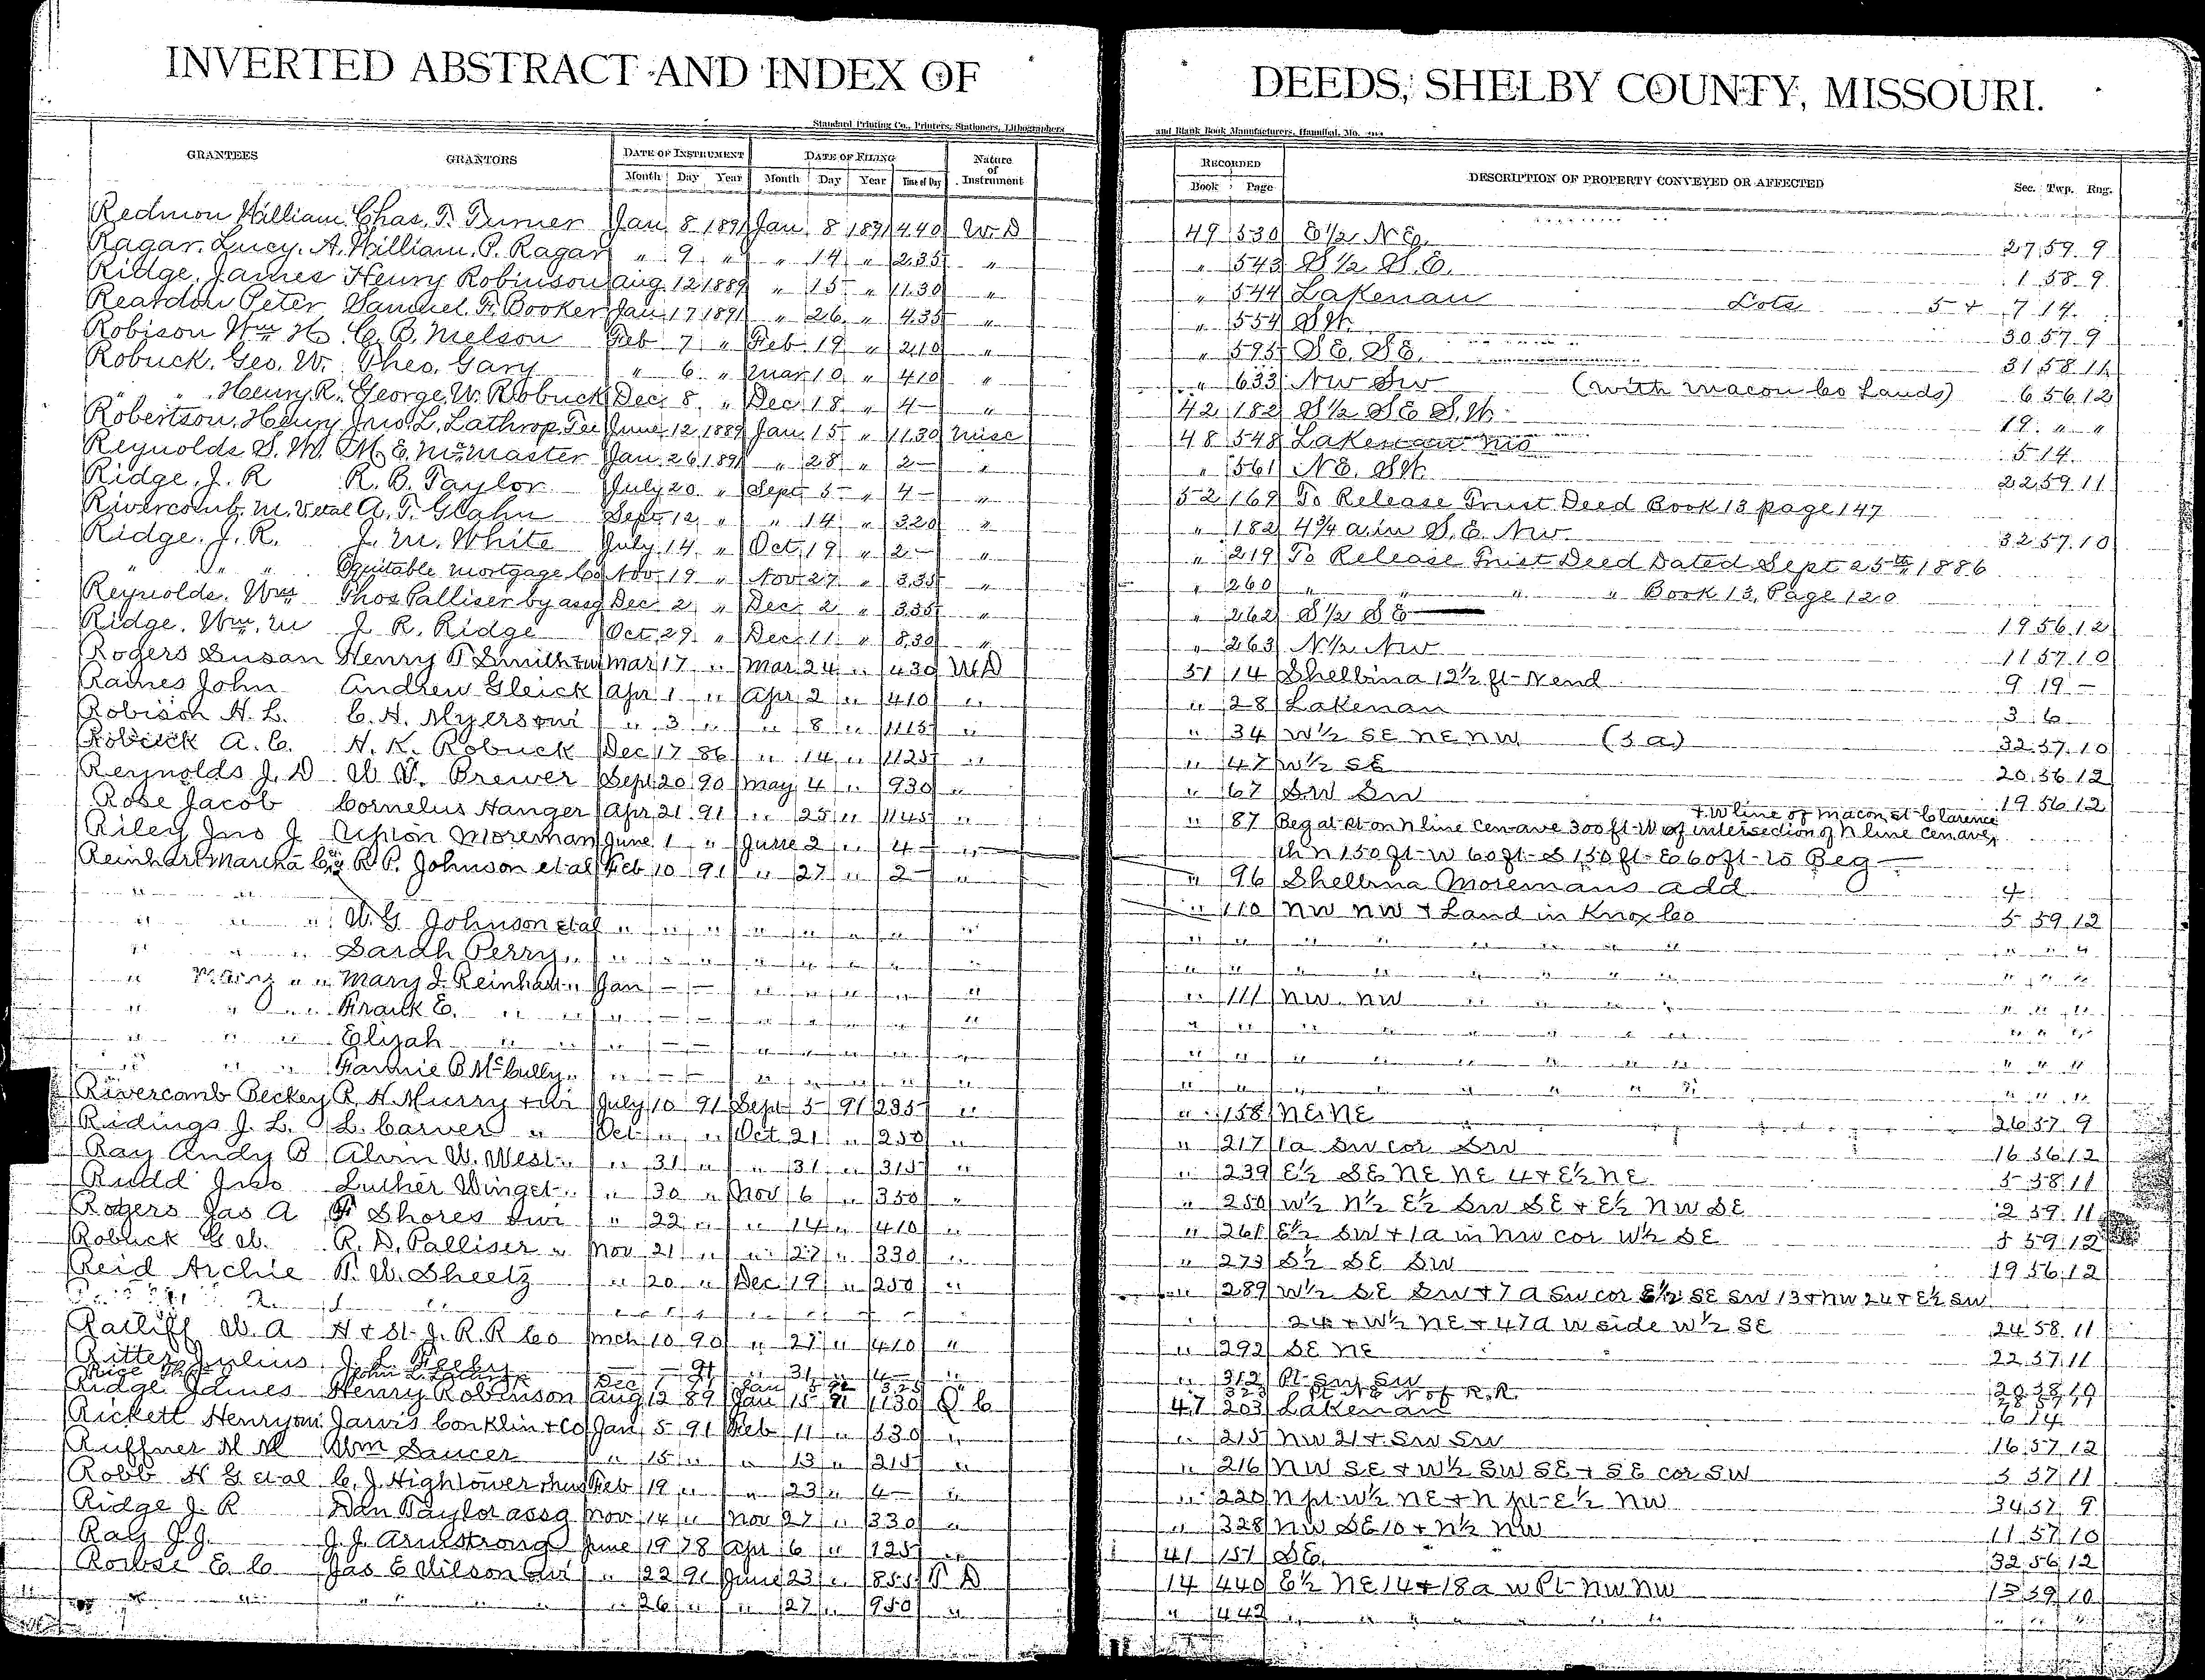 INVERTED ABSTRACT AND INDEX OF DEEDS, SHELBY COUNTY, MISSOURI.
Standard Printing Co., Printers, Stationers, Lithographers and Blank Book Manufacturers, Hannibal, Mo.
GRANTEES GRANTORS DATE OF INSTRUMENT DATE OF FILING Nature of Instrument RECORDED DESCRIPTION OF PROPERTY CONVEYED OR AFFECTED Sec. Twp. Rng.
Month Day Year Month Day Year Time of Day Book Page
Redmon William Chas. T. Turner Jan 8 1891 Jan 8 1891 4.40 W.D 49 530 E 1/2 N E. 27 59 9
Ragar. Lucy. A. William. P. Ragar " 9 " " 14 " 2.35 " " 543 S 1/2 S.E. 1 58 9
Ridge. James Henry Robinson Aug 12 1889 " 15 " 11.30 " " 544 Lakenan Lots 5 + 7 14
Reardon Peter Samuel. F. Booker Jan 17 1891 " 26 " 4.35 " " 554 S W. 30 57 9
Robison Wm H. C. B. Melson Feb 7 " Feb 19 " 2.10 " " 595 S E. S E. 31 58 11
Robuck. Geo. W. Theo. Gary " 6 " Mar 10 " 4.10 " " 633 NW SW (with Macon Co Lands) 6 56 12
" " Henry. R. George. W. Robuck Dec 8 " Dec 18 " 4 — " 42 182 S 1/2 S E S. W. 19 " "
Robertson. Henry Jno. L. Lathrop. Tee June 12 1889 Jan 15 " 11.30 Misc 48 548 Lakenan Mo 5 14
Reynolds S. M. M. E. McMaster Jan 26 1891 " 28 " 2 — " " 561 N E. S W. 22 59 11
Ridge. J. R R. B. Taylor July 20 " Sept 5 " 4 — " 52 169 To Release Trust Deed Book 13 page 147
Rivercomb. M. V. etal A. T. Glahn Sept 12 " " 14 " 3.20 " " 182 4 3/4 a. in S. E. NW. 32 57 10
Ridge. J. R. J. M. White July 14 " Oct 19 " 2 — " " 219 To Release Trust Deed Dated Sept 25th 1886
" " " Equitable Mortgage Co Nov 19 " Nov 27 " 3.35 " " 260 " " " Book 13. Page 120
Reynolds. Wm Thos Palliser by assg Dec 2 " Dec 2 " 3.35 " " 262 S 1/2 S E 19 56 12
Ridge. Wm. M J. R. Ridge Oct 29 " Dec 11 " 8.30 " " 263 N 1/2 NW 11 57 10
Rogers Susan Henry T Smith + wi Mar 17 " Mar 24 " 4 30 W D 51 14 Shelbina 12 1/2 ft - N end 9 19 —
Raines John Andrew Gleick Apr 1 " Apr 2 " 4 10 " " 28 Lakenan 3 6
Robison H. L. C. H. Myers + wi " 3 " " 8 " 11 15 " " 34 W 1/2 SE NE NW (5 a) 32 57 10
Robuck A. C. H. K. Robuck Dec 17 86 " 14 " 11 25 " " 47 W 1/2 SE 20 56 12
Reynolds J. D W. W. Brewer Sept 20 90 May 4 " 9 30 " " 67 SW SW 19 56 12
Rose Jacob Cornelus Hanger Apr 21 91 " 25 " 11 45 " " 87 Beg at pt on N line Cen ave 300 ft W of intersection of N line Cen ave
+ W line of Macon st Clarence
Riley Jno J Upton Moreman June 1 " June 2 " 4 — " th N 150 ft - W 60 ft - S 150 ft - E 60 ft - to Beg —
Reinhart Martha C R P. Johnson et al Feb 10 91 " 27 " 2 — " " 96 Shelbina Moremans add 4
" " " W. G Johnson et al " " " " " " " " " 110 NW NW + Land in Knox Co 5 59 12
" " " Sarah Perry " " " " " " " " " " " " " " " " " " " "
" " " Mary J. Reinhart " Jan — — " " " " " " 111 NW NW " " " " " "
" " " Frank E. " " " — — " " " " " " " " " " " " " " "
" " " Elijah " " " — — " " " " " " " " " " " " " " "
" " " Fannie B McCully " " — — " " " " " " " " " " " " " " "
Rivercomb Beckey R. H. Murry + wi July 10 91 Sept 5 91 2 35 " " 158 NE NE 26 57 9
Ridings J. L. L. Carver " Oct " " Oct 21 " 2 50 " " 217 1 a SW cor SW 16 56 12
Ray Andy B Alvin W. West " " 31 " " 31 " 3 15 " " 239 E 1/2 SE NE NE 4 + E 1/2 NE 5 58 11
Rudd Jno Luther Winget " " 30 " Nov 6 " 3 50 " " 250 W 1/2 N 1/2 E 1/2 SW SE + E 1/2 NW SE 2 59 11
Rogers Jas A F Shores + wi " 22 " " 14 " 4 10 " " 261 E 1/2 SW + 1 a in NW cor W 1/2 SE 5 59 12
Robuck G W. R. D. Palliser " Nov 21 " " 27 " 3 30 " " 273 S 1/2 SE SW 19 56 12
Reid Archie T. W. Sheetz " 20 " Dec 19 " 2 50 " " 289 W 1/2 SE SW + 7 a SW cor E 1/2 SE SW 13 + NW 24 + E 1/2 SW
24 + W 1/2 NE + 47 a W side W 1/2 SE 24 58 11
Ratliff W. A H + St. J. R. R Co Mch 10 90 " 27 " 4 10 " " 292 SE NE 22 57 11
Ritter Julius J. L. Feeby Dec — 91 " 31 " 4 — " " 312 Pt SW SW 20 58 10
Rice John L. Lathrop Jan 5 92 3 25 " 323 Pt NE N of R. R. 28 57 11
Ridge James Henry Robinson Aug 12 89 Jan 15 91 11 30 Q C 47 203 Lakenan 6 14
Rickett Henry + wi Jarvis Conklin + Co Jan 5 91 Feb 11 " 5 30 " " 215 NW 21 + SW SW 16 57 12
Ruffner M M Wm Saucer " 15 " " 13 " 2 15 " " 216 NW SE + W 1/2 SW SE + SE cor SW 3 57 11
Robb H G et al C. J. Hightower + hus Feb 19 " " 23 " 4 — " " 220 N pt - W 1/2 NE + N pt - E 1/2 NW 34 57 9
Ridge J. R Dan Taylor assg Nov 14 " Nov 27 " 3 30 " " 328 NW SE 10 + N 1/2 NW 11 57 10
Ray J. J. J. J. Armstrong June 19 78 Apr 6 " 1 25 " 41 151 SE. 32 56 12
Rowse E. C Jas E Wilson + wi " 22 91 June 23 " 8 55 T D 14 440 E 1/2 NE 14 + 18 a W Pt - NW NW 13 59 10
" " " " " " " 26 " " 27 " 9 50 " " 442 " " " " " " " " "